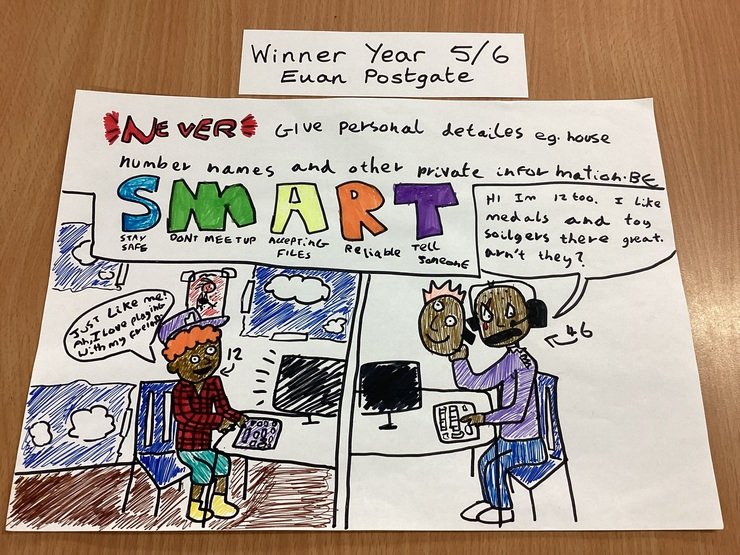 Winner Year 5/6
Euan Postgate
NEVER Give personal detailes eg. house
number names and other private information. BE
SMART
STAY SAFE
DONT MEET UP
ACCEPTING FILES
Reliable
Tell Someone
HI Im 12 too. I like
medals and toy
soilgers there great.
arn't they?
Just Like me!
I love playing
with my
12
46